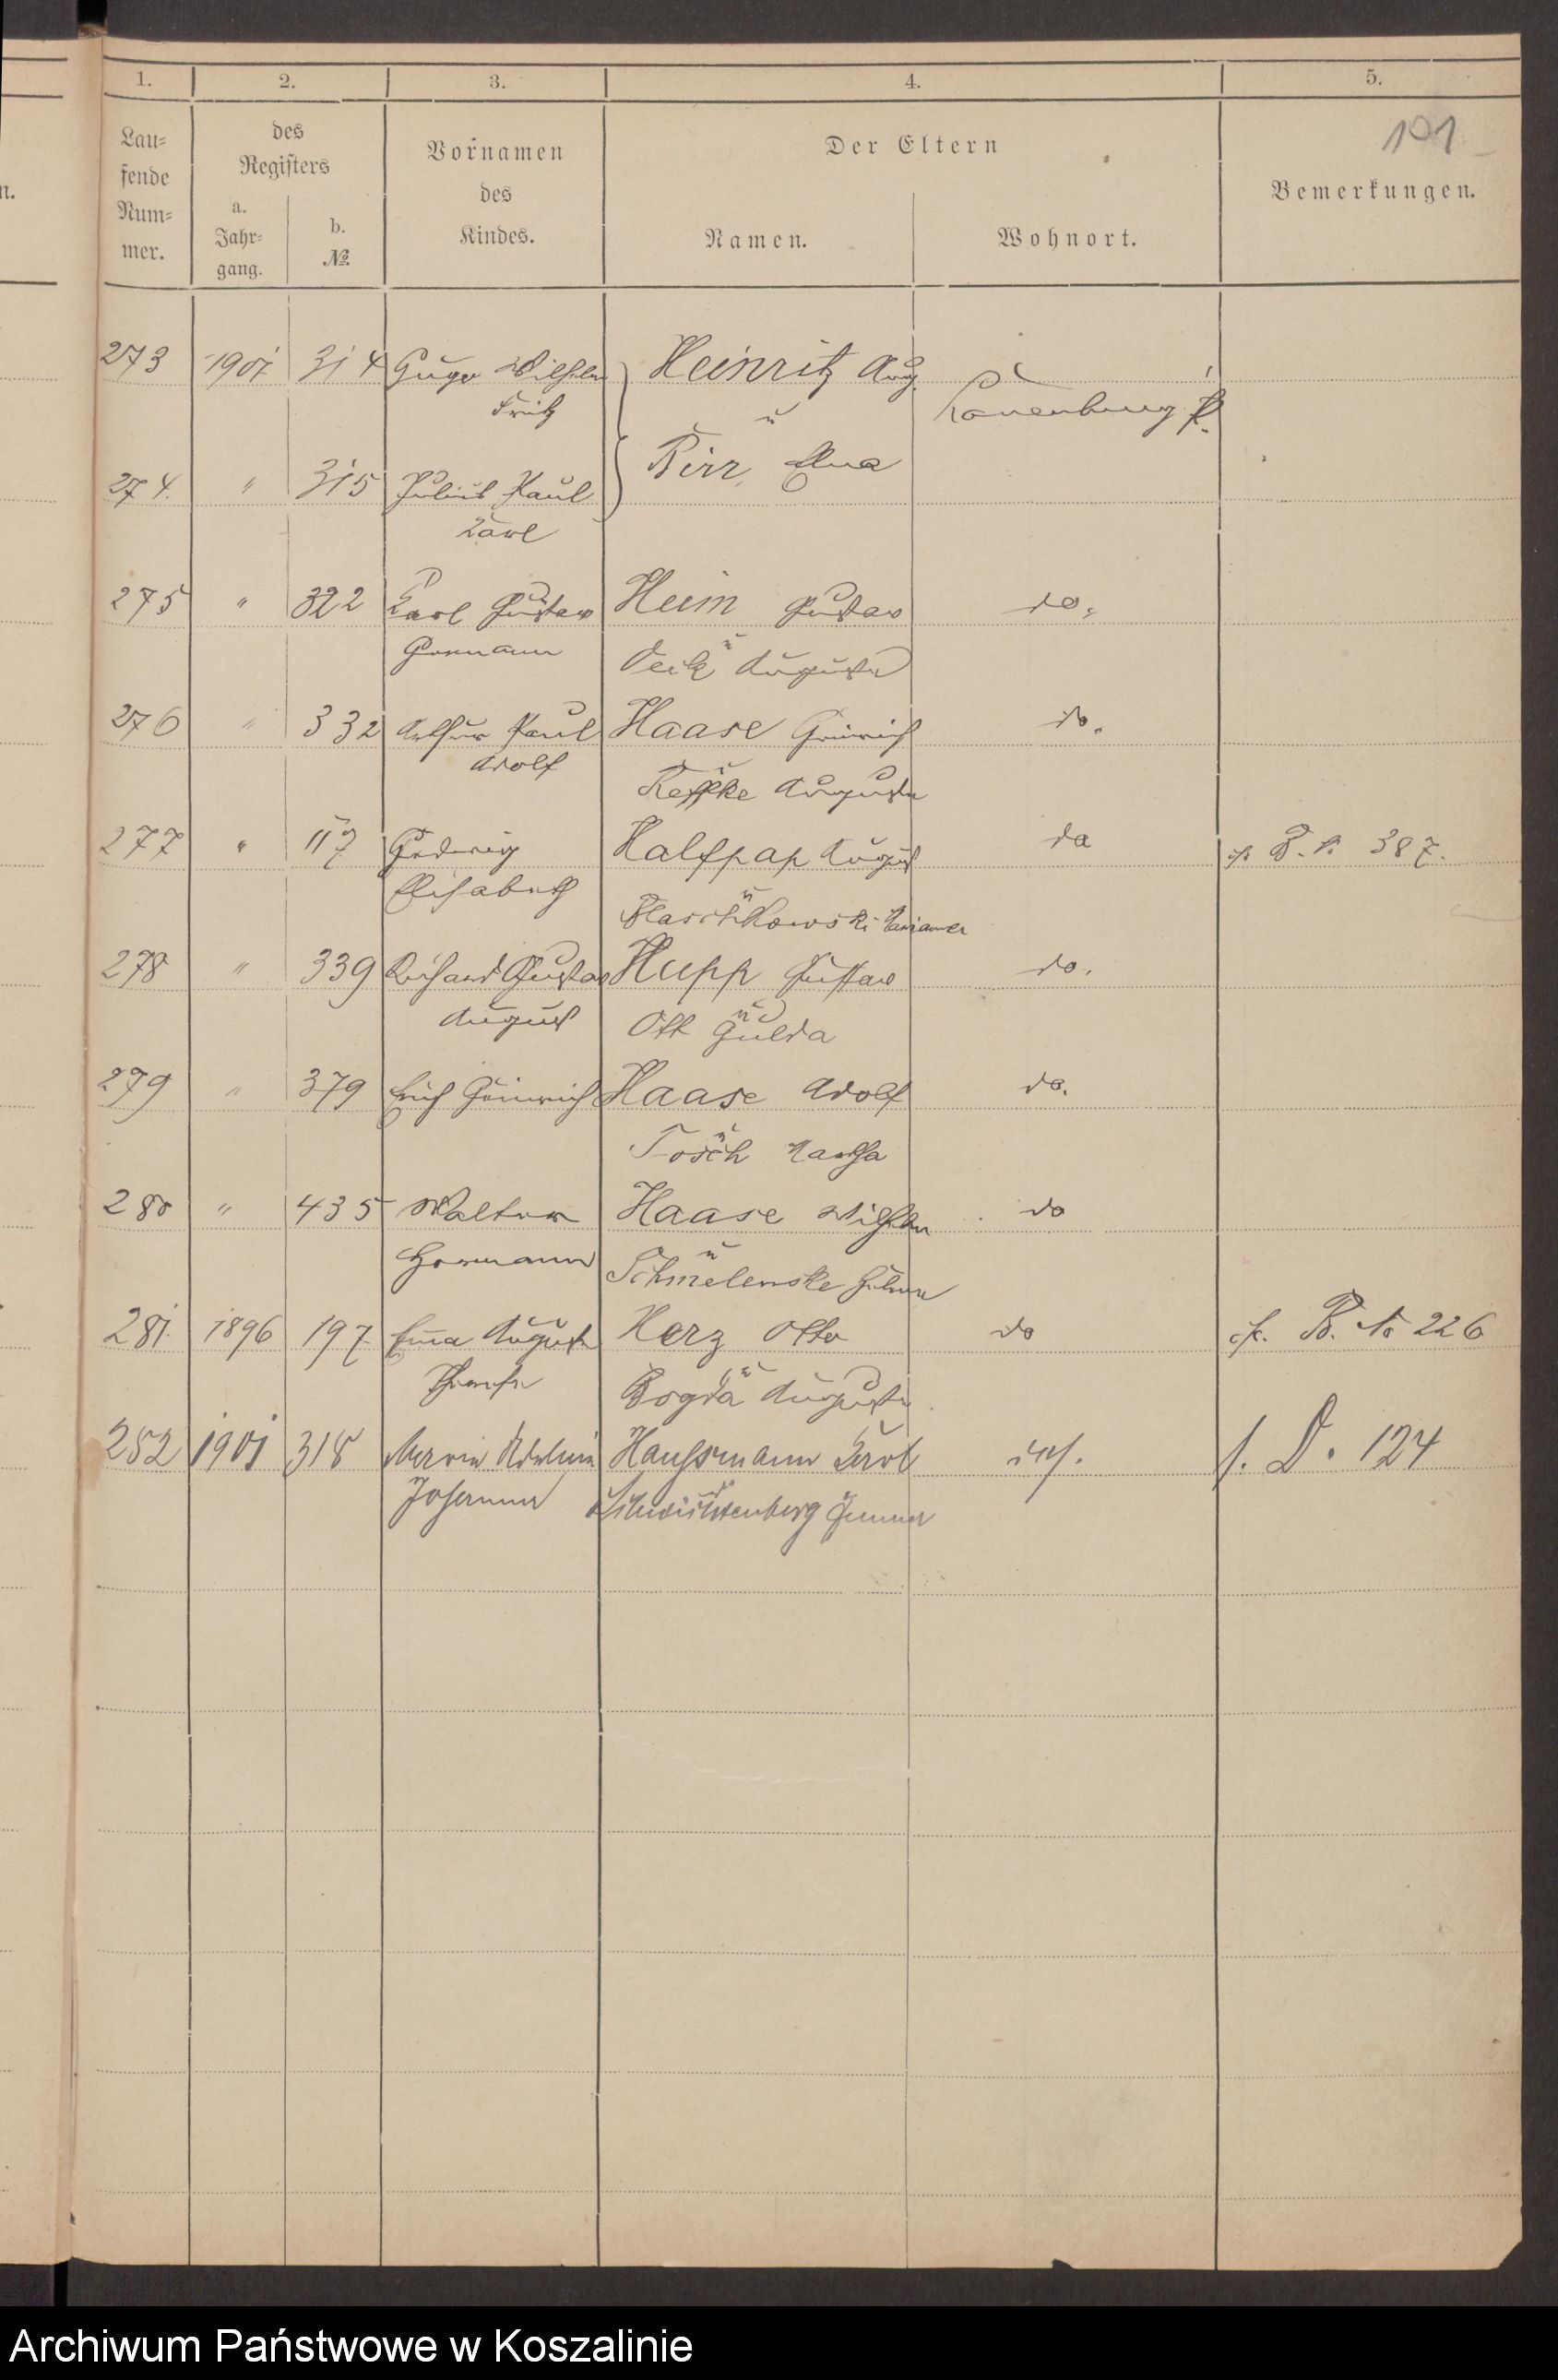 1. 2. 3. 4. 5.
Lau=
fende
Num=
mer.
des
Registers
a.
Jahr=
gang.
b.
№.
Vornamen
des
Kindes.
Der Eltern
Namen.
Wohnort.
101
Bemerkungen.
n.
273 1901 314 Hugo Wilhelm Heinritz Aug.
Fritz u Lauenburg P.
274. " 315 Julius Paul Birr,
Karl
275 " 322 Karl Gustav Heim Gustav do.
Hermann u Auguste
276 " 332 Arthur Paul Haase Heinrich do.
Adolf u Reppke Auguste
277 " 117 Hedwig Halfpap August do cf. B. N. 387.
Elisabeth u Blaschkowski
278 " 339 Richard Gustav Hupp Gustav do.
August u Ott Hulda
279 " 379 Erich Heinrich Haase Adolf do.
u Tosch Martha
280 " 435 Walter Haase Wilhelm do
Hermann u Schmelenske
281. 1896 197. Emma Auguste Herz Otto do cf. B. No 226
Therese u Bogda Auguste
282 1901 318 Haussmann Karl f. D. 124
Johanna
Archiwum Państwowe w Koszalinie